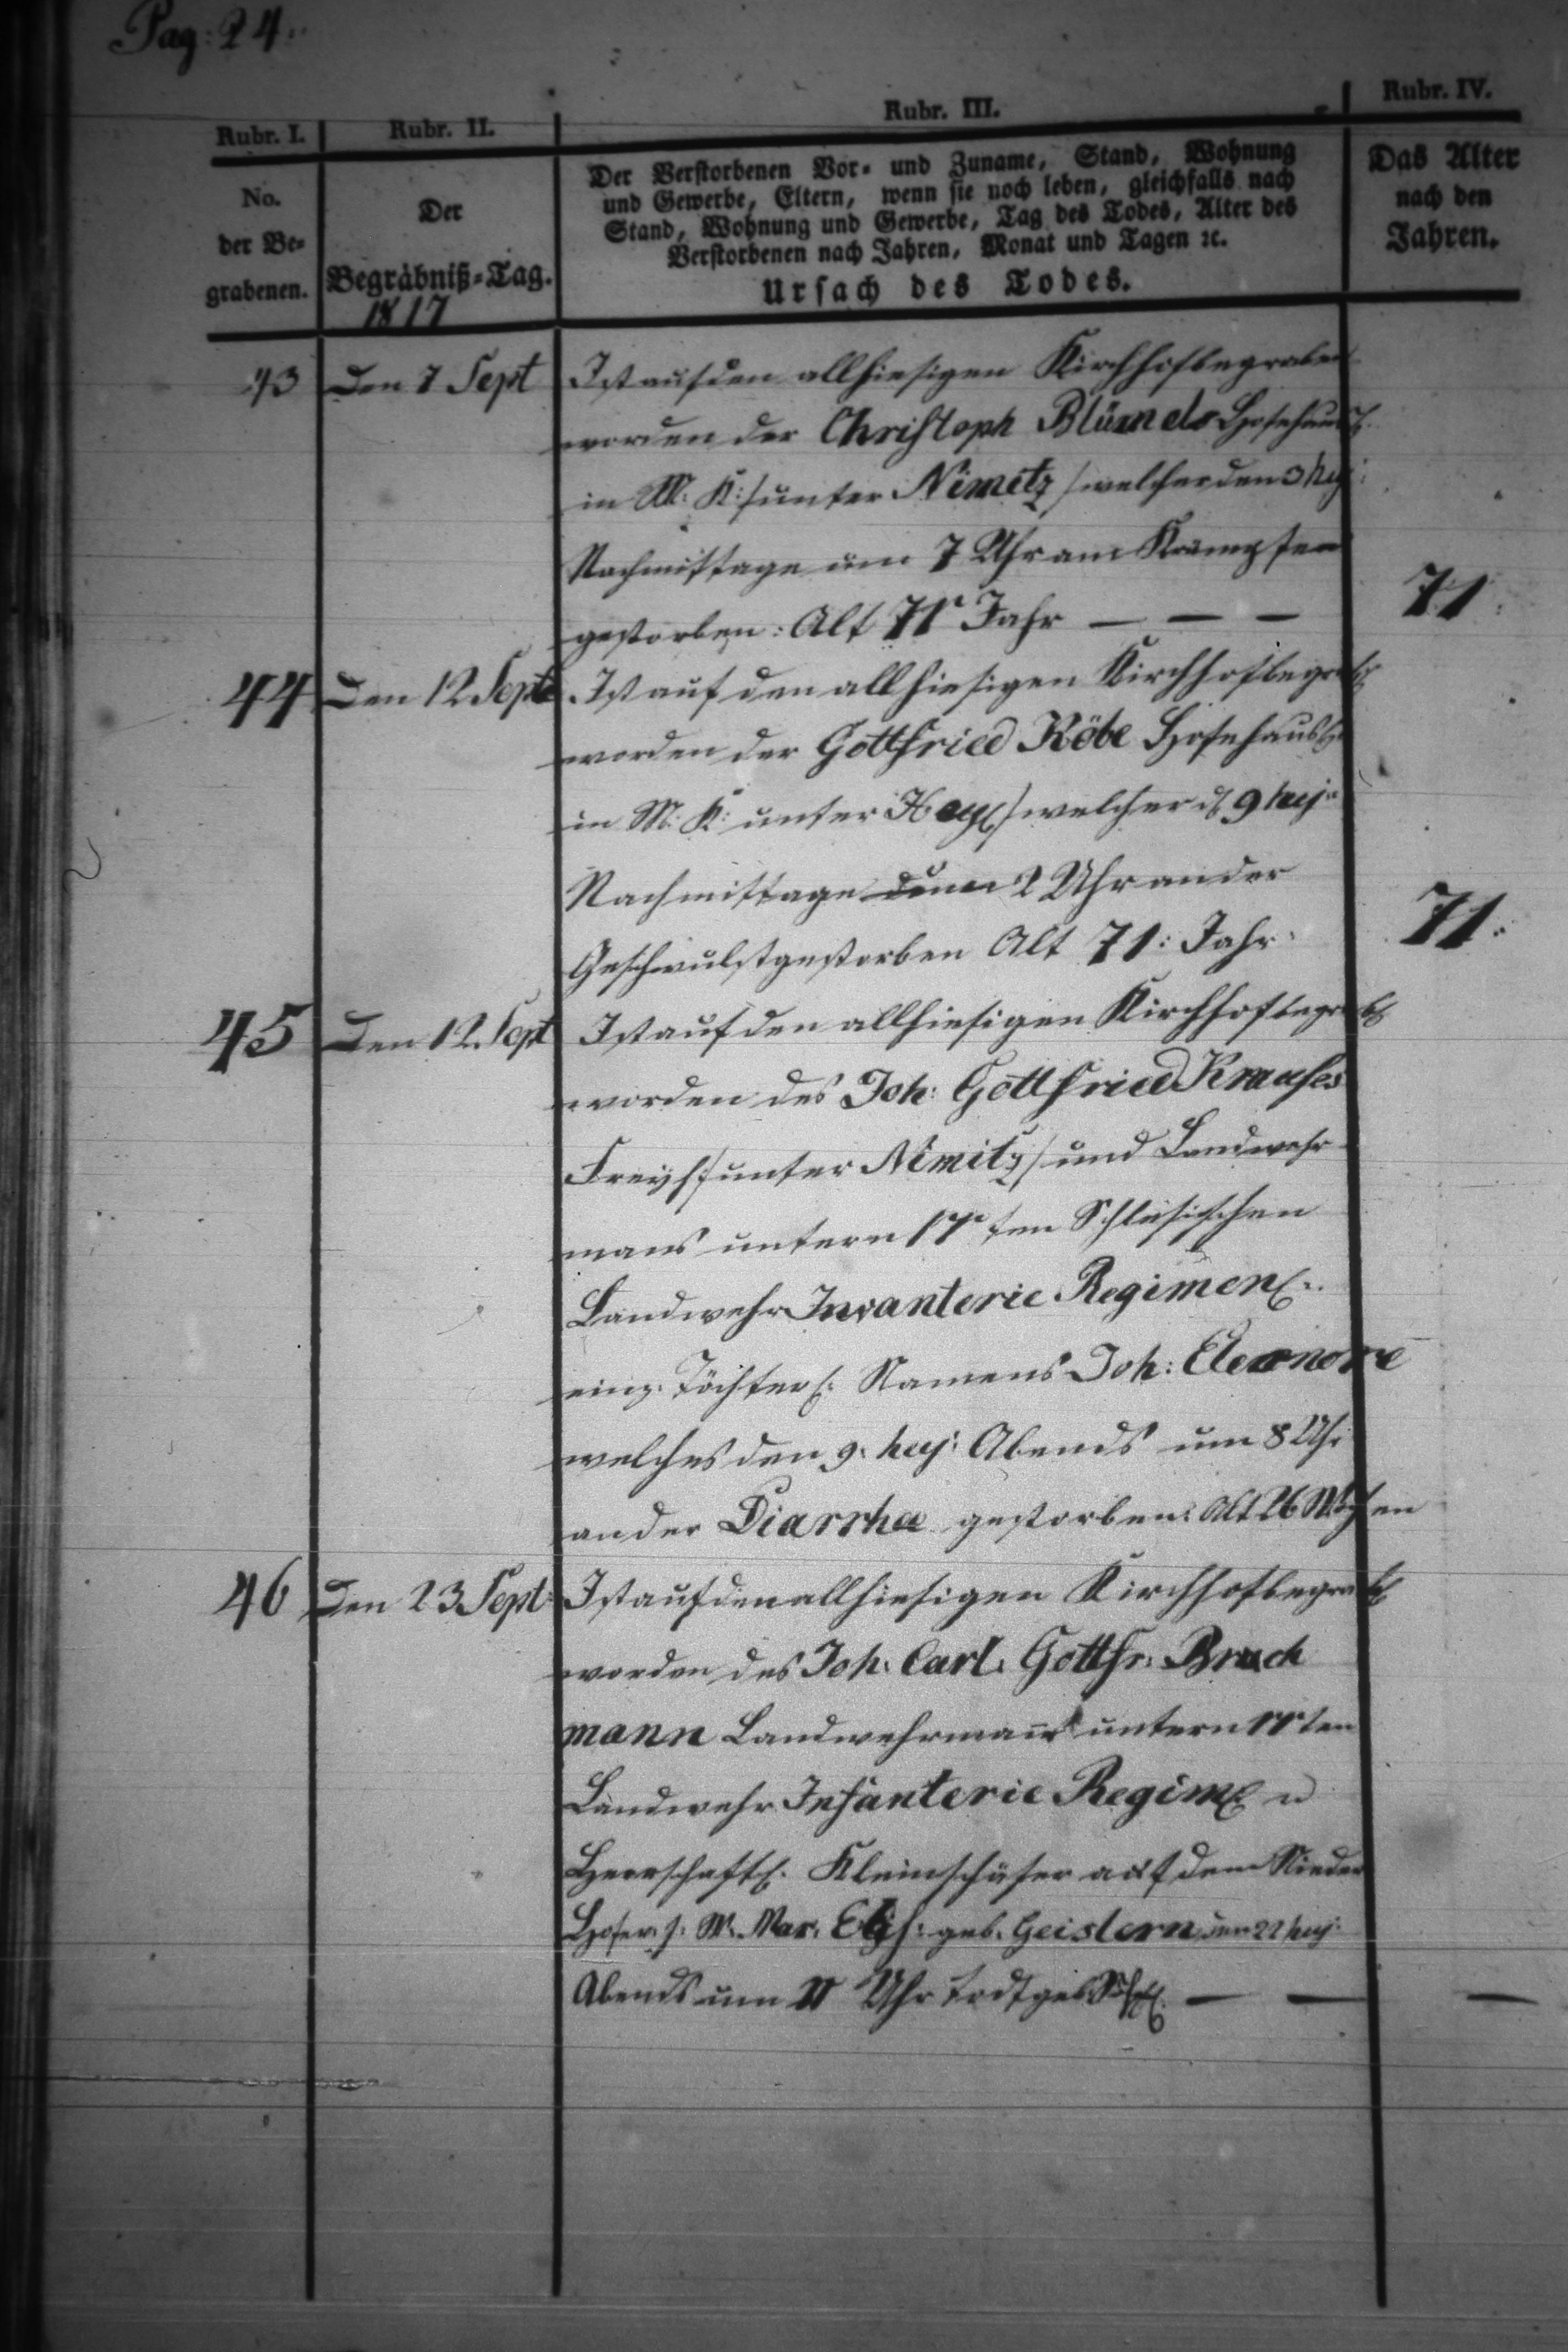 Pag: 24.
Rubr. I. Rubr. II. Rubr. III. Rubr. IV.
No.
der Be-
grabenen.
Der
Begräbniß-Tag.
1817
Der Verstorbenen Vor- und Zuname, Stand, Wohnung
und Gewerbe, Eltern, wenn sie noch leben, gleichfalls nach
Stand, Wohnung und Gewerbe, Tag des Todes, Alter des
Verstorbenen nach Jahren, Monat und Tagen ꝛc.
Ursach des Todes.
Das Alter
nach den
Jahren.
43 Den 7 Sept Ist auf den allhiesigen Kirchhof begraben
worden der Christoph Blümels
in M: K: /unter Nimitz/ welcher den 3 huj:
Nachmittage um 7 Uhr am
gestorben: Alt 71 Jahr — — — 71:
44 Den 12 Sept Ist auf den allhiesigen Kirchhof begrab
worden der Gottfried Röbe
in M: K: unter welcher d 9 huj:
Nachmittage um 2 Uhr an der
Geschwulst gestorben Alt 71: Jahr: 71:
45 Den 12. Sept Ist auf den allhiesigen Kirchhof begrab
worden des Joh: Gottfried Krauses
Freyh /unter Nimitz/ und Landwehr
mans untern ten Schlesischen
Landwehr Invanterie Regimen
einz. Töchterl: Namens Joh: Eleonore
welches den 9. huj: Abends um 8 Uhr
an der Diarrhœ gestorben: Alt 26 Wochen
46 Den 23 Sept: Ist auf den allhiesigen Kirchhof begrab
worden des Joh. Carl. Gottfr: Bruch
mann Landwehrman untern ten
Landwehr Infanterie Regim u
Herrschaftl. Kleinschäfer auf dem Nieder
Hofe. Mar. geb. Geislern den 22 huj:
Abends um 11 Uhr todtgeb — — —